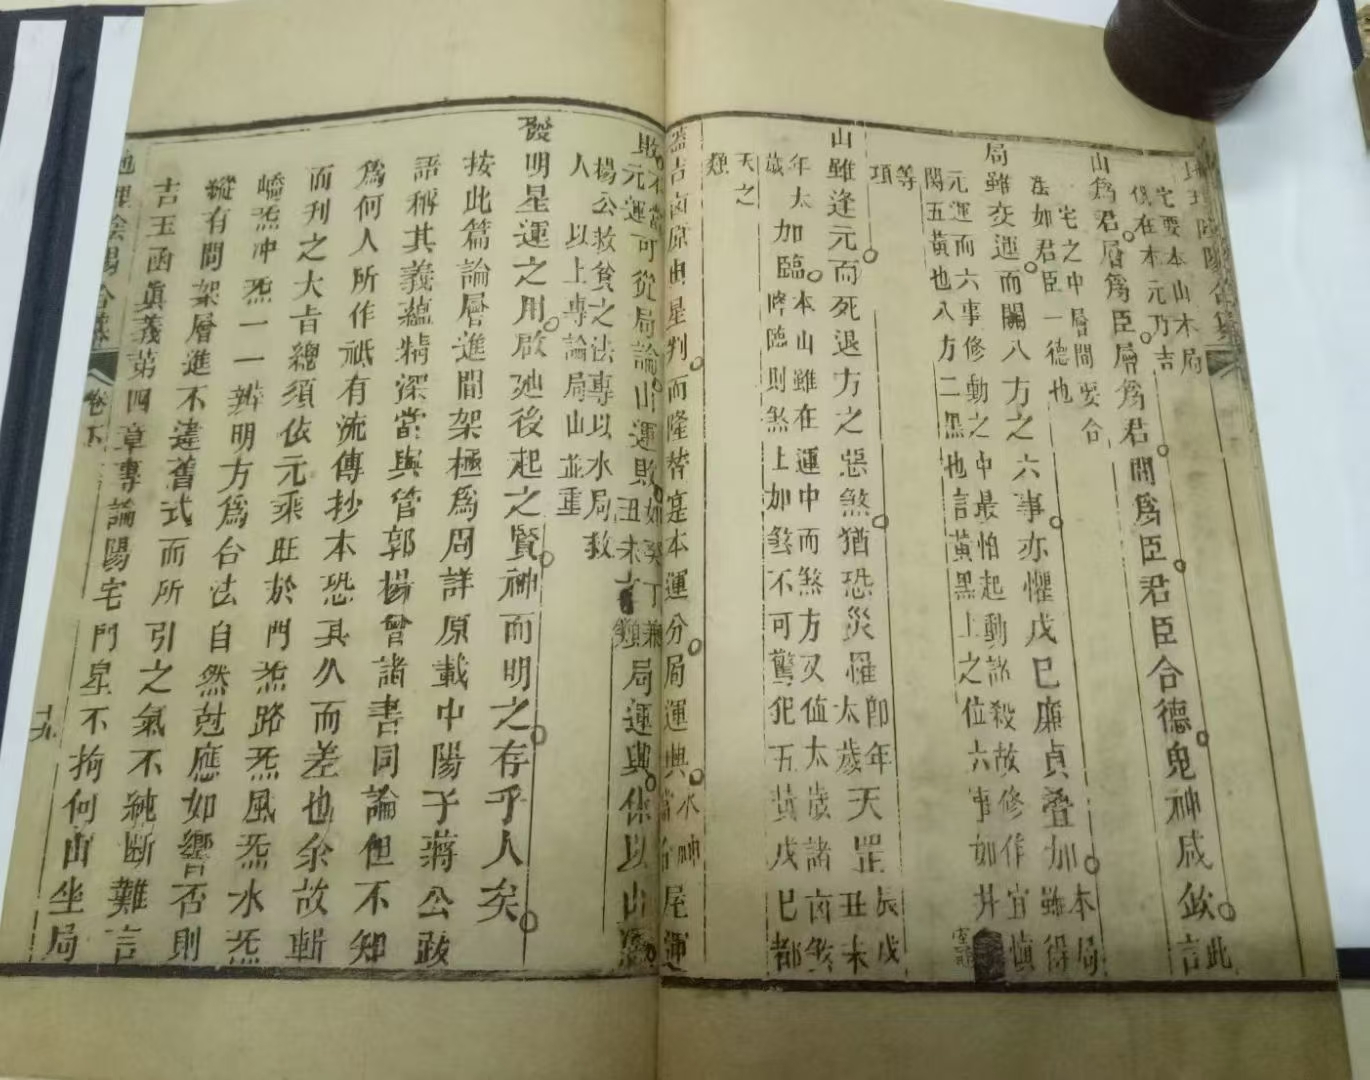 山爲君層爲臣層爲君間爲臣君臣合德鬼神咸欽此言
宅之中層間要合
法如君臣一德也
局雖交運而關八方之六事亦懼戊巳廉貞叠加本局雖得
元運而六事修動之中最怕起動諸殺故修作宜慎
関五黃也八方二黑也言黃黑上之位六事如井
等項
山雖逢元而死退方之惡煞猶恐災罹太歲天罡
即年辰戌丑未
年太歲加臨本山雖在運中而煞方又值太歲諸凶煞
降臨則煞上加煞不可驚犯五黃戊巳都
天之類
葢吉凶原由星判而隆替寔本運分局運興
水神當令
屋運敗
不當元運
可從局論山運敗
如癸丁兼丑未
類
局運興休以山
楊公救貧之法專以水局救
人以上專論局山並重
發明星運之用啟廸後起之賢神而明之存乎人矣
按此篇論層進間架極爲周詳原載中陽子蔣公跋
語稱其義蘊精深當與管郭楊曾諸書同論但不知
爲何人所作祇有流傳抄本恐其久而差也余故輯
而刋之大㫖總須依元乘旺於門炁路炁風炁水炁
嶠炁冲炁一一辨明方爲合法自然尅應如響否則
縱有間架層進不違舊式而所引之氣不純斷難言
吉玉函眞義第四章專論陽宅門星不拘何山坐局
卷下
十九